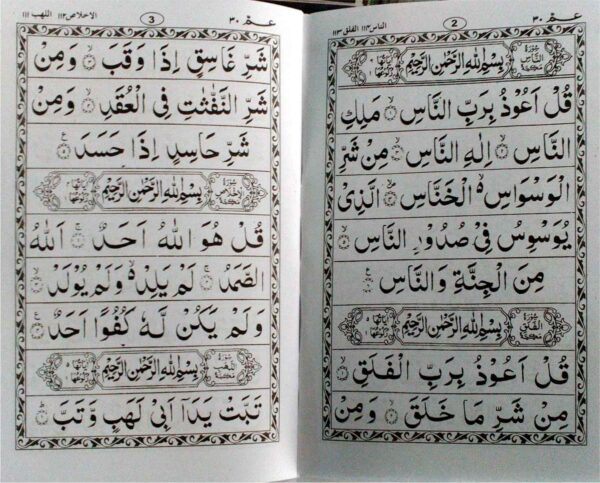 عـمّ ٣٠
2
الناس ١١٤ الفلق ١١٣
سُوْرَةُ النَّاسِ مَكِّيَّةٌ بِسْمِ اللهِ الرَّحْمٰنِ الرَّحِيْمِ
قُلْ اَعُوْذُ بِرَبِّ النَّاسِ ۙ مَلِكِ
النَّاسِ ۙ اِلٰهِ النَّاسِ ۙ مِنْ شَرِّ
الْوَسْوَاسِ ۙ۬ الْخَنَّاسِ ۪ۙ الَّذِيْ
يُوَسْوِسُ فِيْ صُدُوْرِ النَّاسِ ۙ
مِنَ الْجِنَّةِ وَالنَّاسِ
سُوْرَةُ الْفَلَقِ مَكِّيَّةٌ بِسْمِ اللهِ الرَّحْمٰنِ الرَّحِيْمِ
قُلْ اَعُوْذُ بِرَبِّ الْفَلَقِ ۙ
مِنْ شَرِّ مَا خَلَقَ ۙ وَمِنْ
عـمّ ٣٠
3
الاخلاص ١١٢ اللهب ١١١
شَرِّ غَاسِقٍ اِذَا وَقَبَ ۙ وَمِنْ
شَرِّ النَّفّٰثٰتِ فِي الْعُقَدِ ۙ وَمِنْ
شَرِّ حَاسِدٍ اِذَا حَسَدَ
بِسْمِ اللهِ الرَّحْمٰنِ الرَّحِيْمِ
قُلْ هُوَ اللهُ اَحَدٌ ۚ اَللهُ
الصَّمَدُ ۚ لَمْ يَلِدْ ۙ۬ وَلَمْ يُوْلَدْ ۙ
وَلَمْ يَكُنْ لَّهٗ كُفُوًا اَحَدٌ
بِسْمِ اللهِ الرَّحْمٰنِ الرَّحِيْمِ
تَبَّتْ يَدَآ اَبِيْ لَهَبٍ وَّتَبَّ